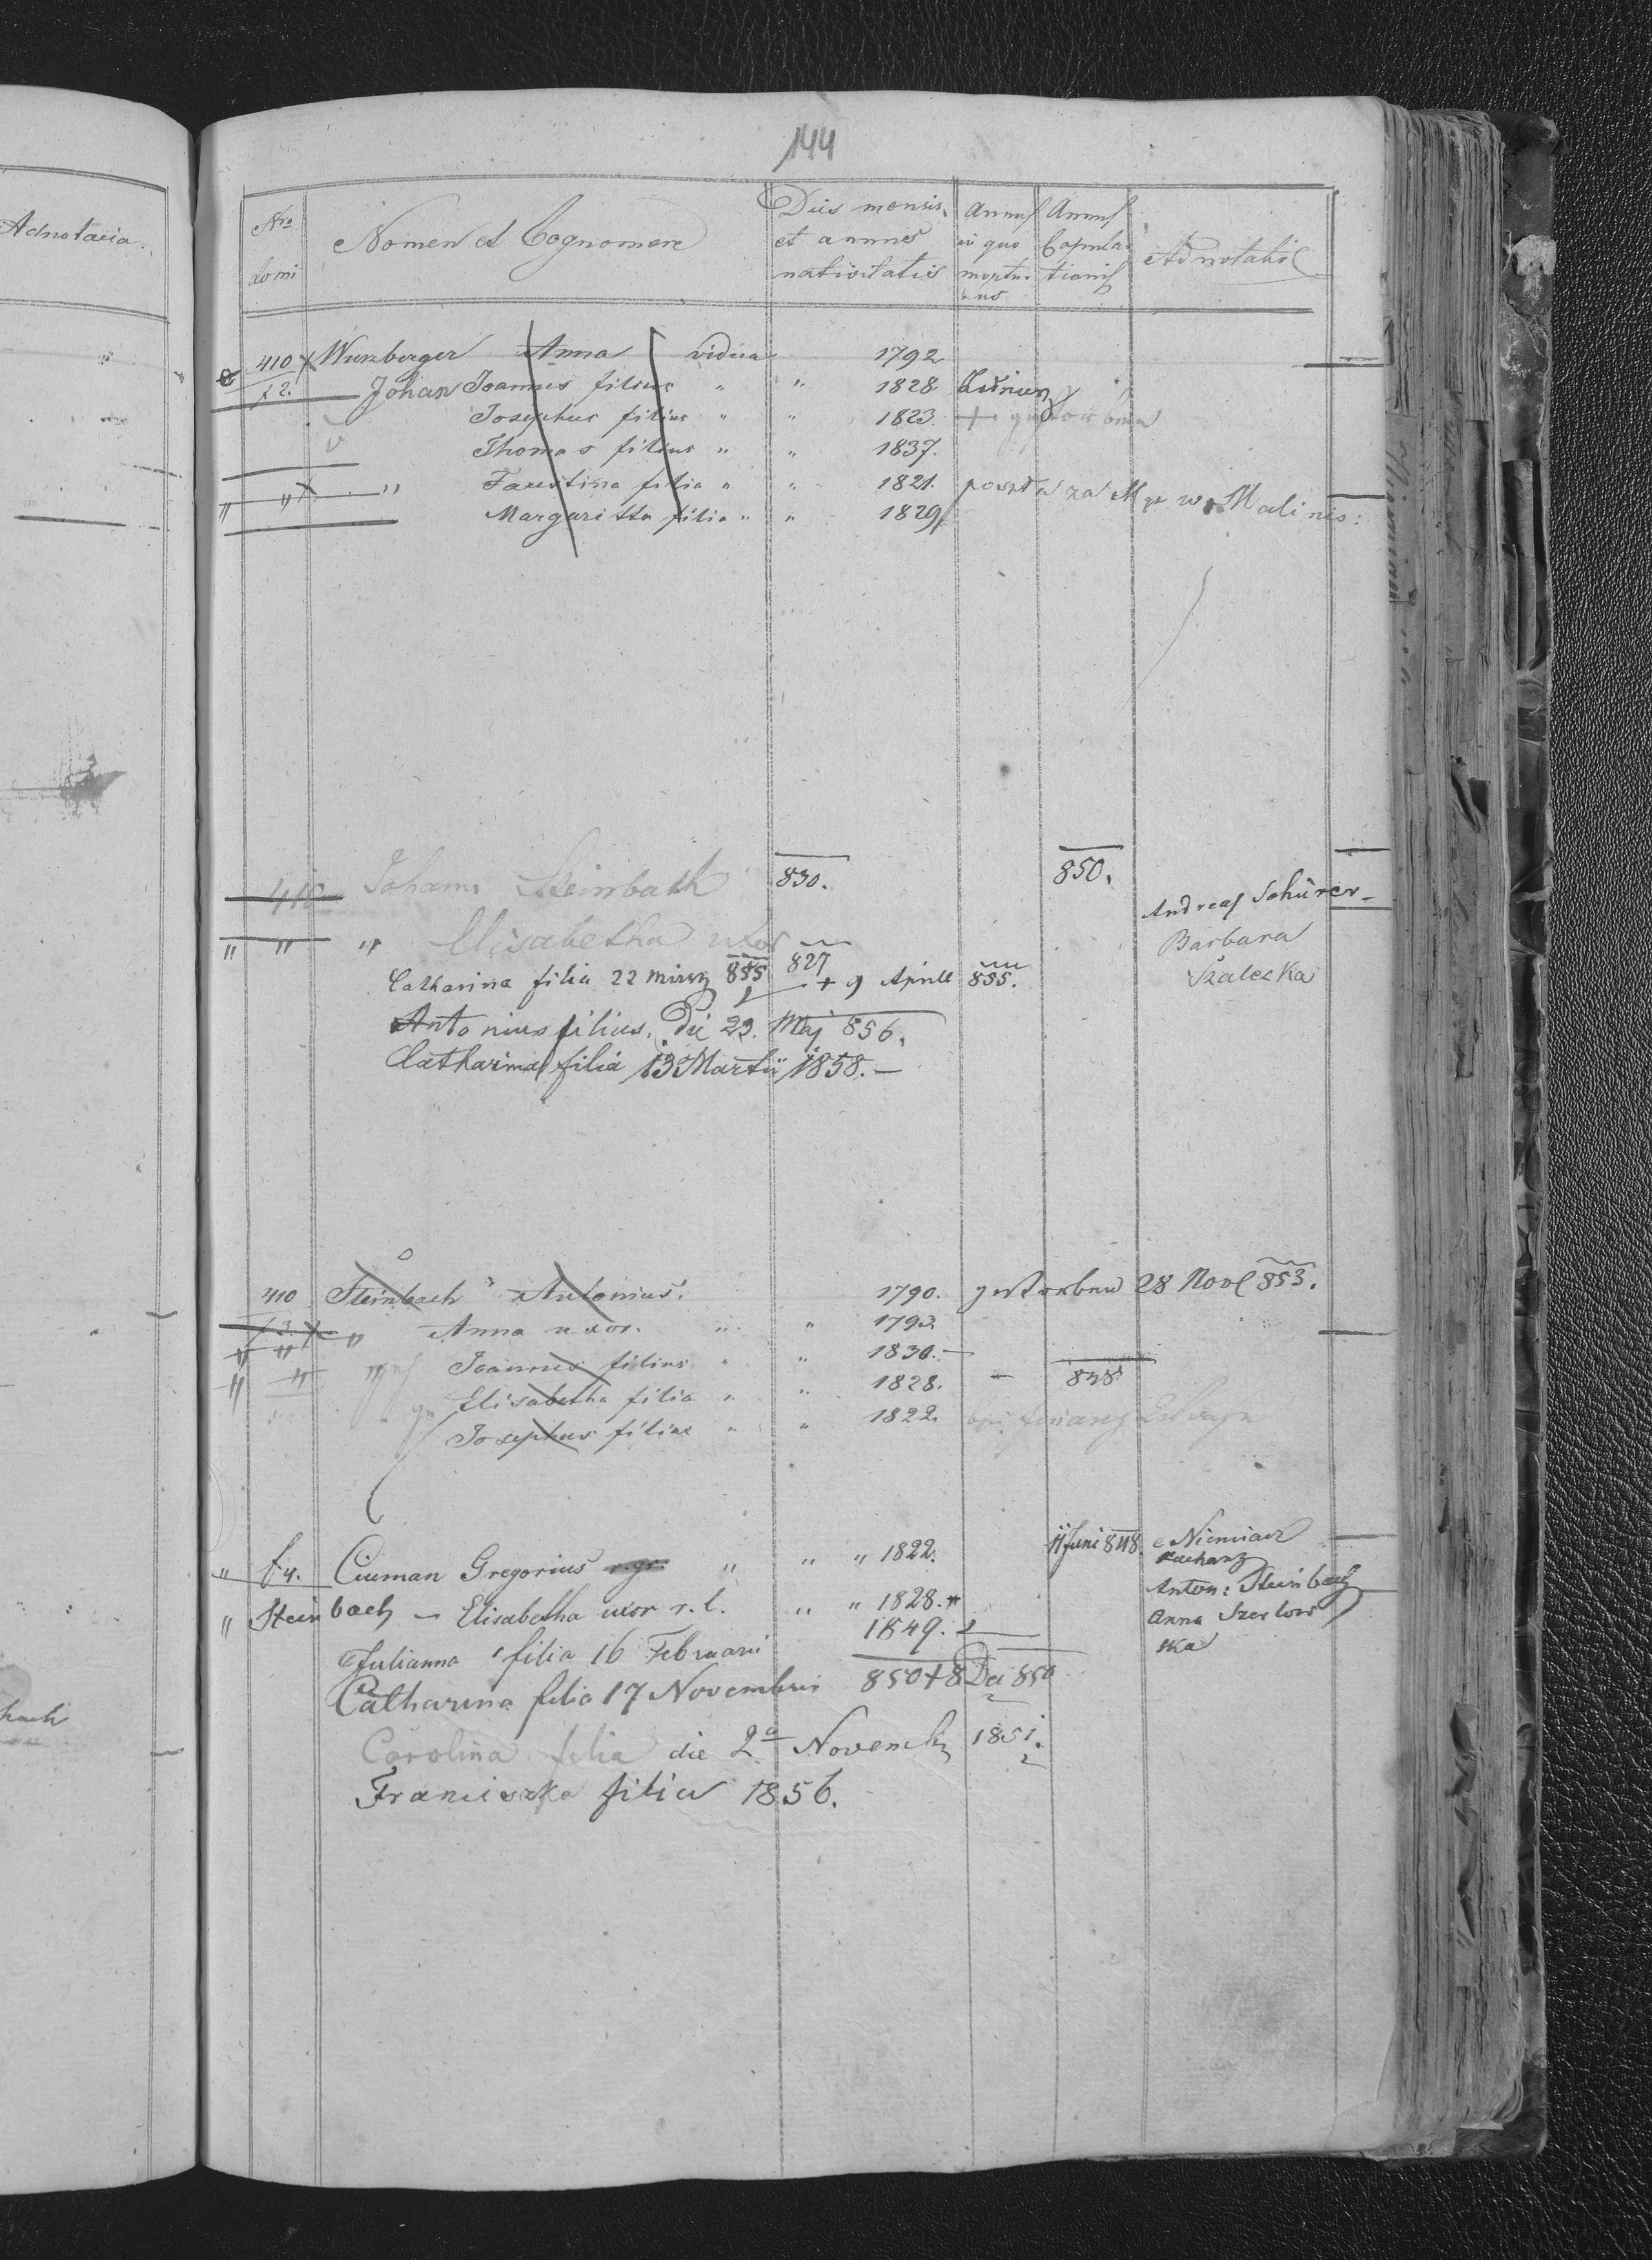 144
Adnotacia.
Nro domi
Nomen et Cognomen
Dies mensis et annus nativitatis
Annus in quo mortuus
Annus Copulationis
Adnotatio
410 Wurzberger Anna vidua 1792
f 2. Johan Joannes filius " " 1828
Josephus filius " " 1823. +
Thomas filius " " 1837.
" " " Faustina filia " " 1821. poszła za w Malinis:
Margaritta filia " " 1829
410 Johann Steinbach 830. 850. Andreas Schürer
" " " Elisabetha uxor 827 Barbara
Szaleska
Catharina filia 22 855 + 9 Aprill 855.
Antonius filius. Die 23. Maj 856.
Catharina filia 13 Martii 1858.
410 Steinbach Antonius. 1790. 28 Nov 853.
f 3. " Anna uxor. " " 1793
" " Joannes filius " " 1830.
" " Elisabetha filia " " 1828. 848
Josephus filius " " 1822.
" f 4. Ciuman Gregorius " " " 1822. 11 Juni 848. Niemiad
Anton: Steinbach
" Steinbach – Elisabetha uxor r. l. " " 1828. Anna Szerlow
ska
Julianna filia 16 Februarii 1849.
Catharina filia 17 Novembris 850 + 8 850
Carolina filia die 2a Novemb 1851.
Franciszka filia 1856.
bach